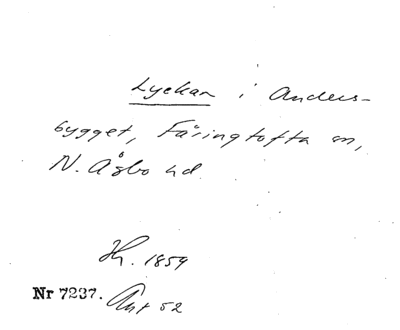 Lyckan i Anders-
bygget, Färingtofta sn,
N. Åsbo hd.
Hk. 1859
Nr 7237. Ant 52